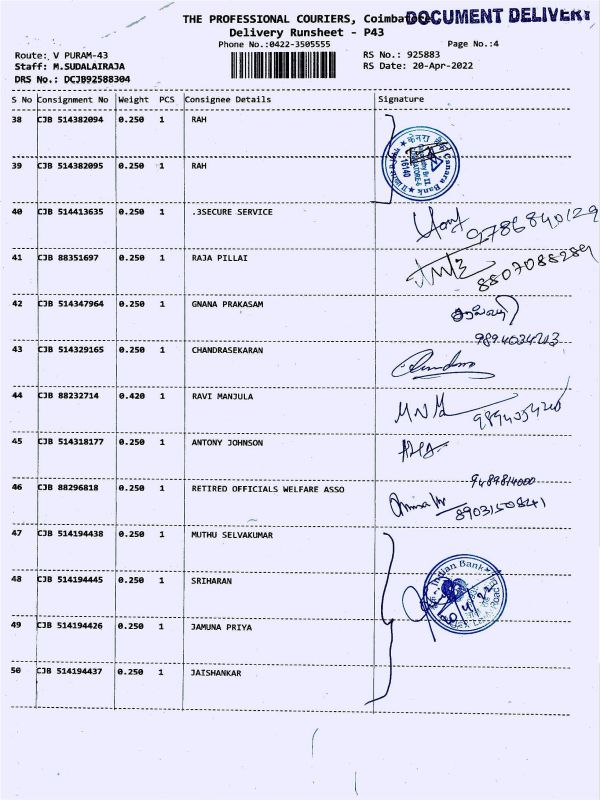 THE PROFESSIONAL COURIERS, Coimbatore
DOCUMENT DELIVERY
Delivery Runsheet - P43
Phone No.:0422-3505555
Page No.:4
Route: V PURAM-43
RS No.: 925883
Staff: M.SUDALAIRAJA
RS Date: 20-Apr-2022
DRS No.: DCJB92588304
S No Consignment No Weight PCS Consignee Details Signature
38 CJB 514382094 0.250 1 RAH
केनरा बैंक Canara Bank
16140
39 CJB 514382095 0.250 1 RAH
40 CJB 514413635 0.250 1 .3SECURE SERVICE
9786840129
41 CJB 88351697 0.250 1 RAJA PILLAI
8807088289
42 CJB 514347964 0.250 1 GNANA PRAKASAM
43 CJB 514329165 0.250 1 CHANDRASEKARAN
44 CJB 88232714 0.420 1 RAVI MANJULA
45 CJB 514318177 0.250 1 ANTONY JOHNSON
46 CJB 88296818 0.250 1 RETIRED OFFICIALS WELFARE ASSO
47 CJB 514194438 0.250 1 MUTHU SELVAKUMAR
Indian Bank
48 CJB 514194445 0.250 1 SRIHARAN
49 CJB 514194426 0.250 1 JAMUNA PRIYA
50 CJB 514194437 0.250 1 JAISHANKAR